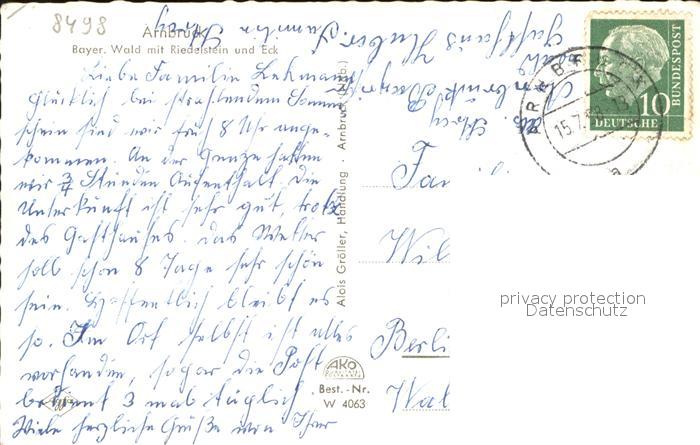 8498
Arnbruck
Bayer. Wald mit Riedelstein und Eck
Liebe Familie Lehmann
Glücklich bei strahlendem Sonnen
schein sind wir früh 8 Uhr ange-
kommen. An der Grenze hatten
wir Stunden Aufenthalt. Die
Unterkunft ist sehr gut, trotz
des Gasthauses. Das Wetter
soll schon 8 Tage sehr schön
sein. Hoffentlich bleibt es
so. Im Ort selbst ist alles
vorhanden, sogar die Post
kommt 3 mal täglich
Viele herzliche Grüße von Ihrer
Familie
Gasthaus Huber
Alois Gröller, Handlung · Arnbruck (Ndb.)
AKO
Best.-Nr.
W 4063
10
DEUTSCHE
BUNDESPOST
ARNBRUCK
15.7.
Fa
Wil
Berli
privacy protection
Datenschutz